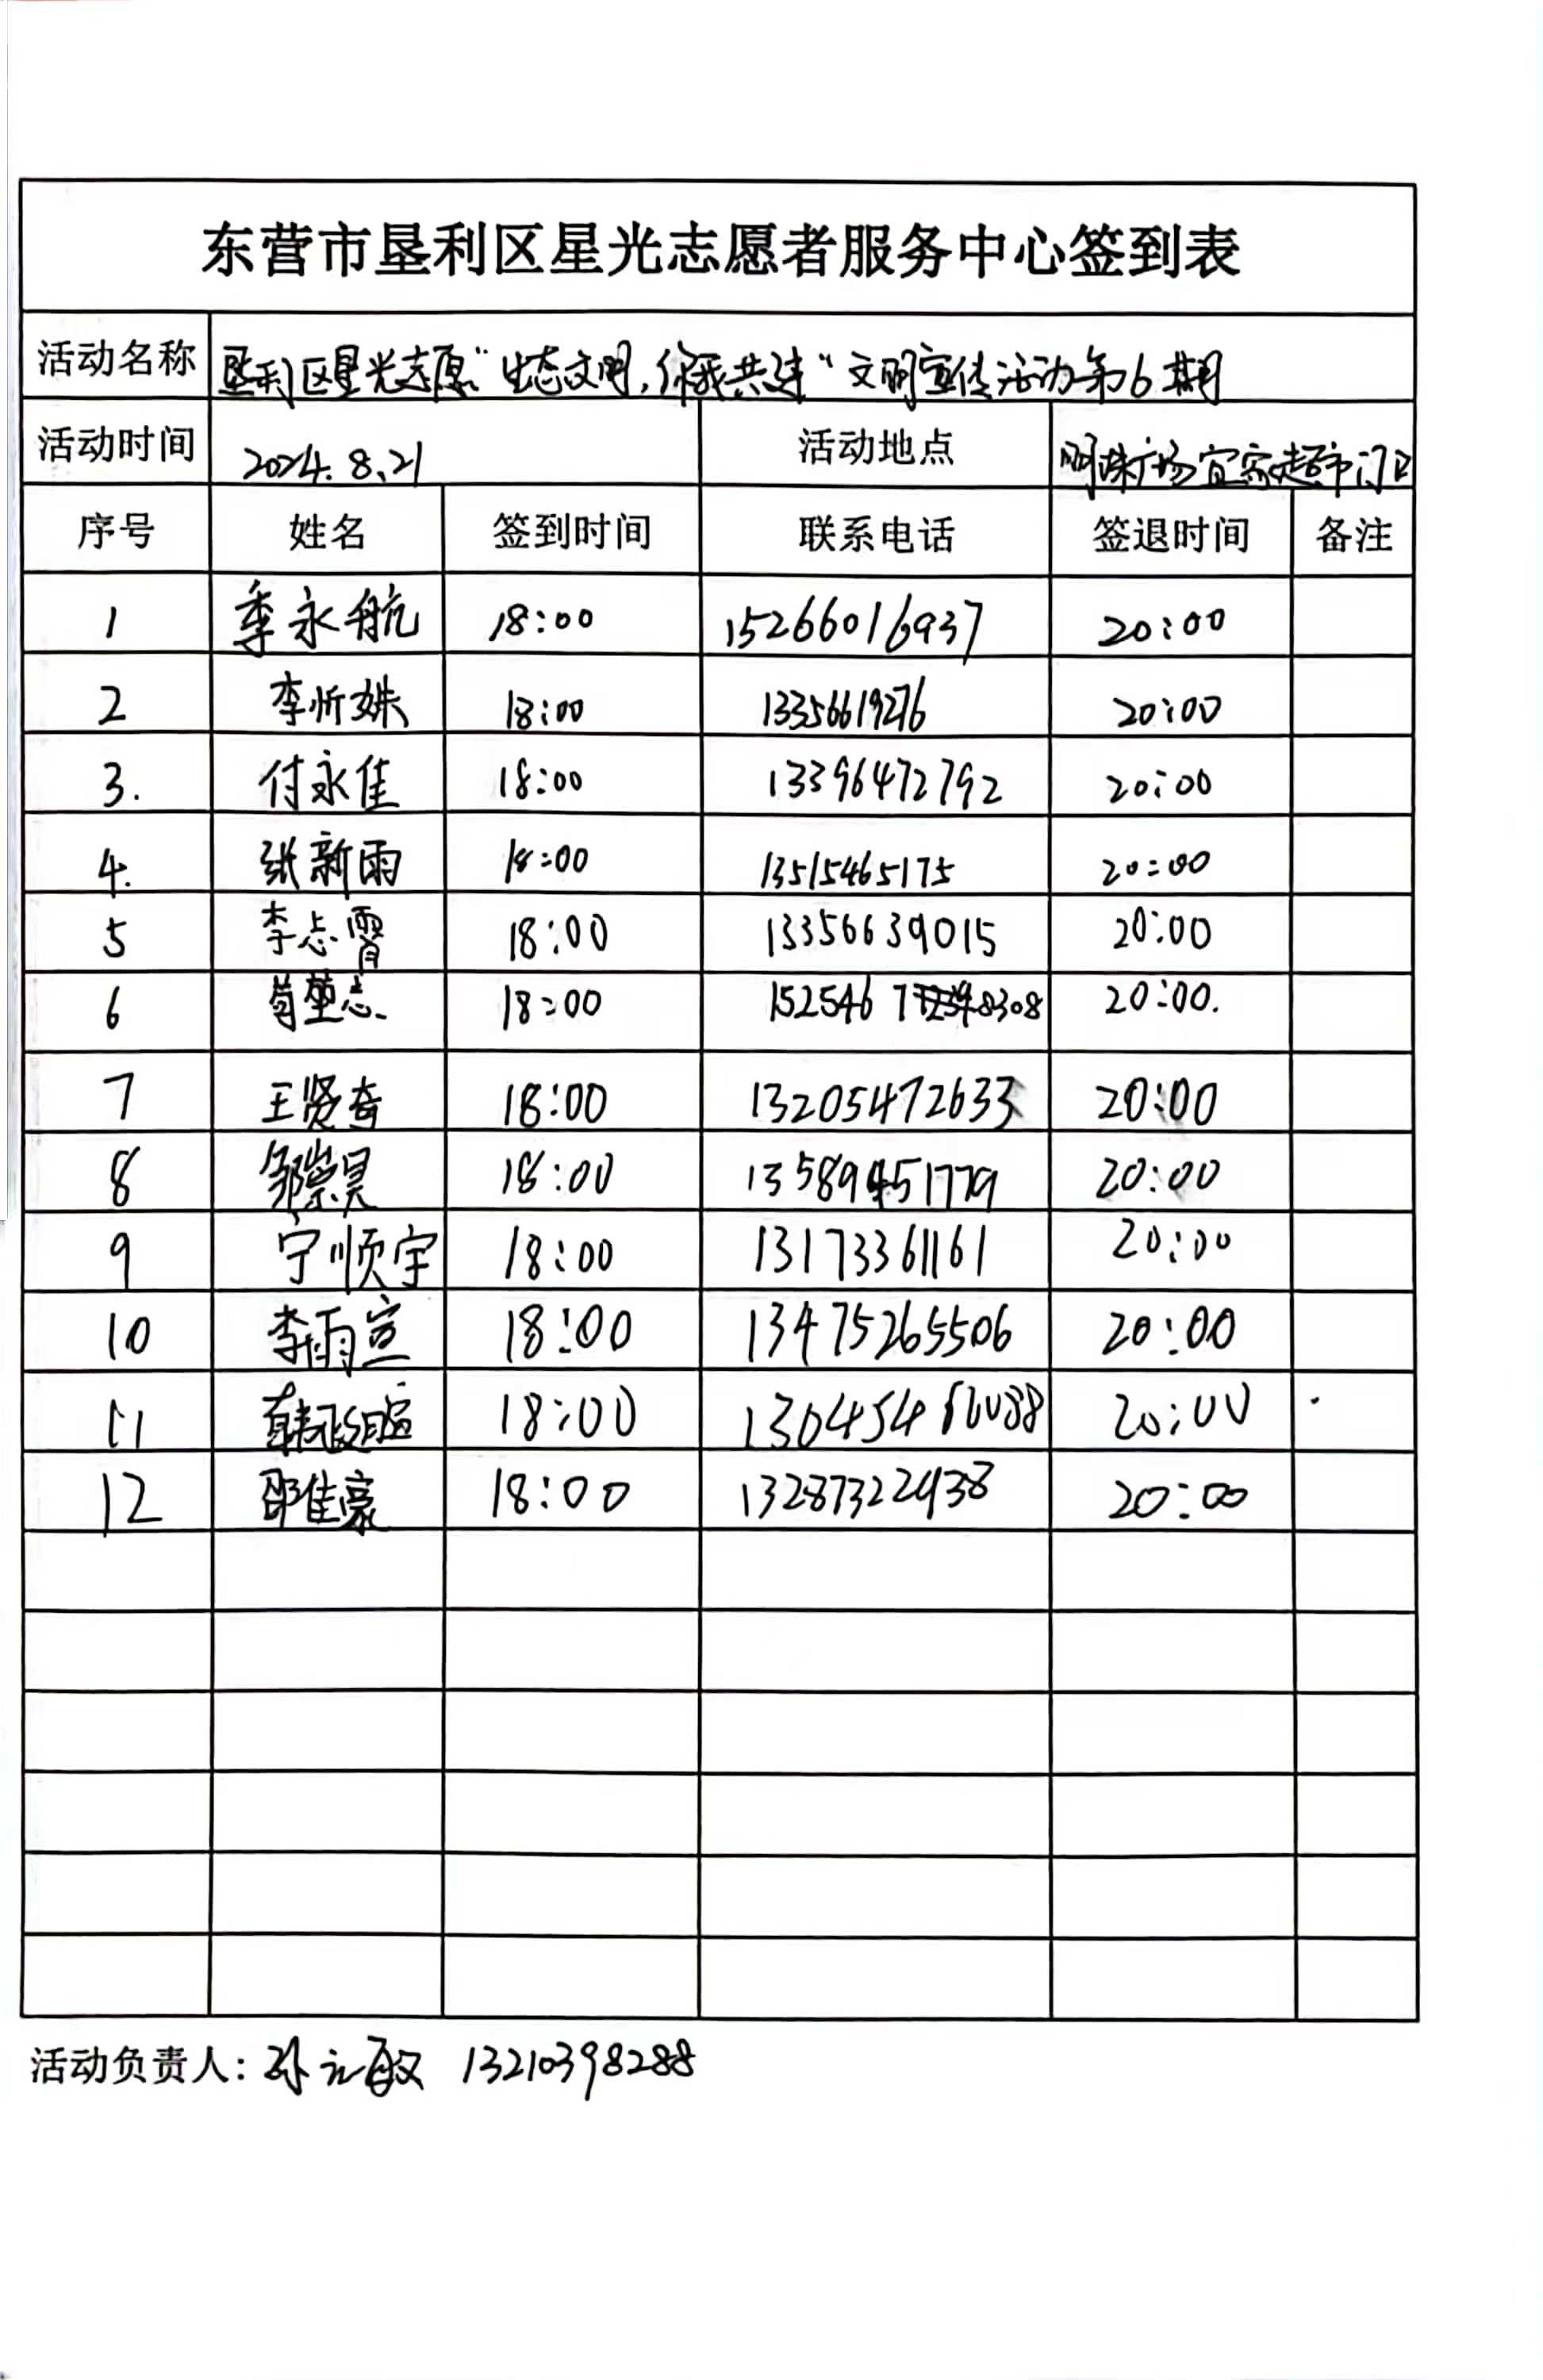 东营市垦利区星光志愿者服务中心签到表
活动名称 垦利区星光志愿“生态文明,你我共建“文明宣传活动第6期
活动时间 2024.8.21 活动地点 明珠广场宜家超市门口
序号 姓名 签到时间 联系电话 签退时间 备注
1 李永航 18:00 15266016937 20:00
2 李忻姝 18:00 13356619276 20:00
3. 付永佳 18:00 13396472792 20:00
4. 张新雨 18:00 13515465175 20:00
5 李志霄 18:00 13356639015 20:00
6 18:00 152546 20:00.
7 王贤奇 18:00 13205472633 20:00
8 邹崇昊 18:00 13589451779 20:00
9 宁顺宇 18:00 13173361161 20:00
10 李雨宣 18:00 13475265506 20:00
11 18:00 20:00
12 邵佳豪 18:00 13287322938 20:00
活动负责人: 孙元敏 13210398288